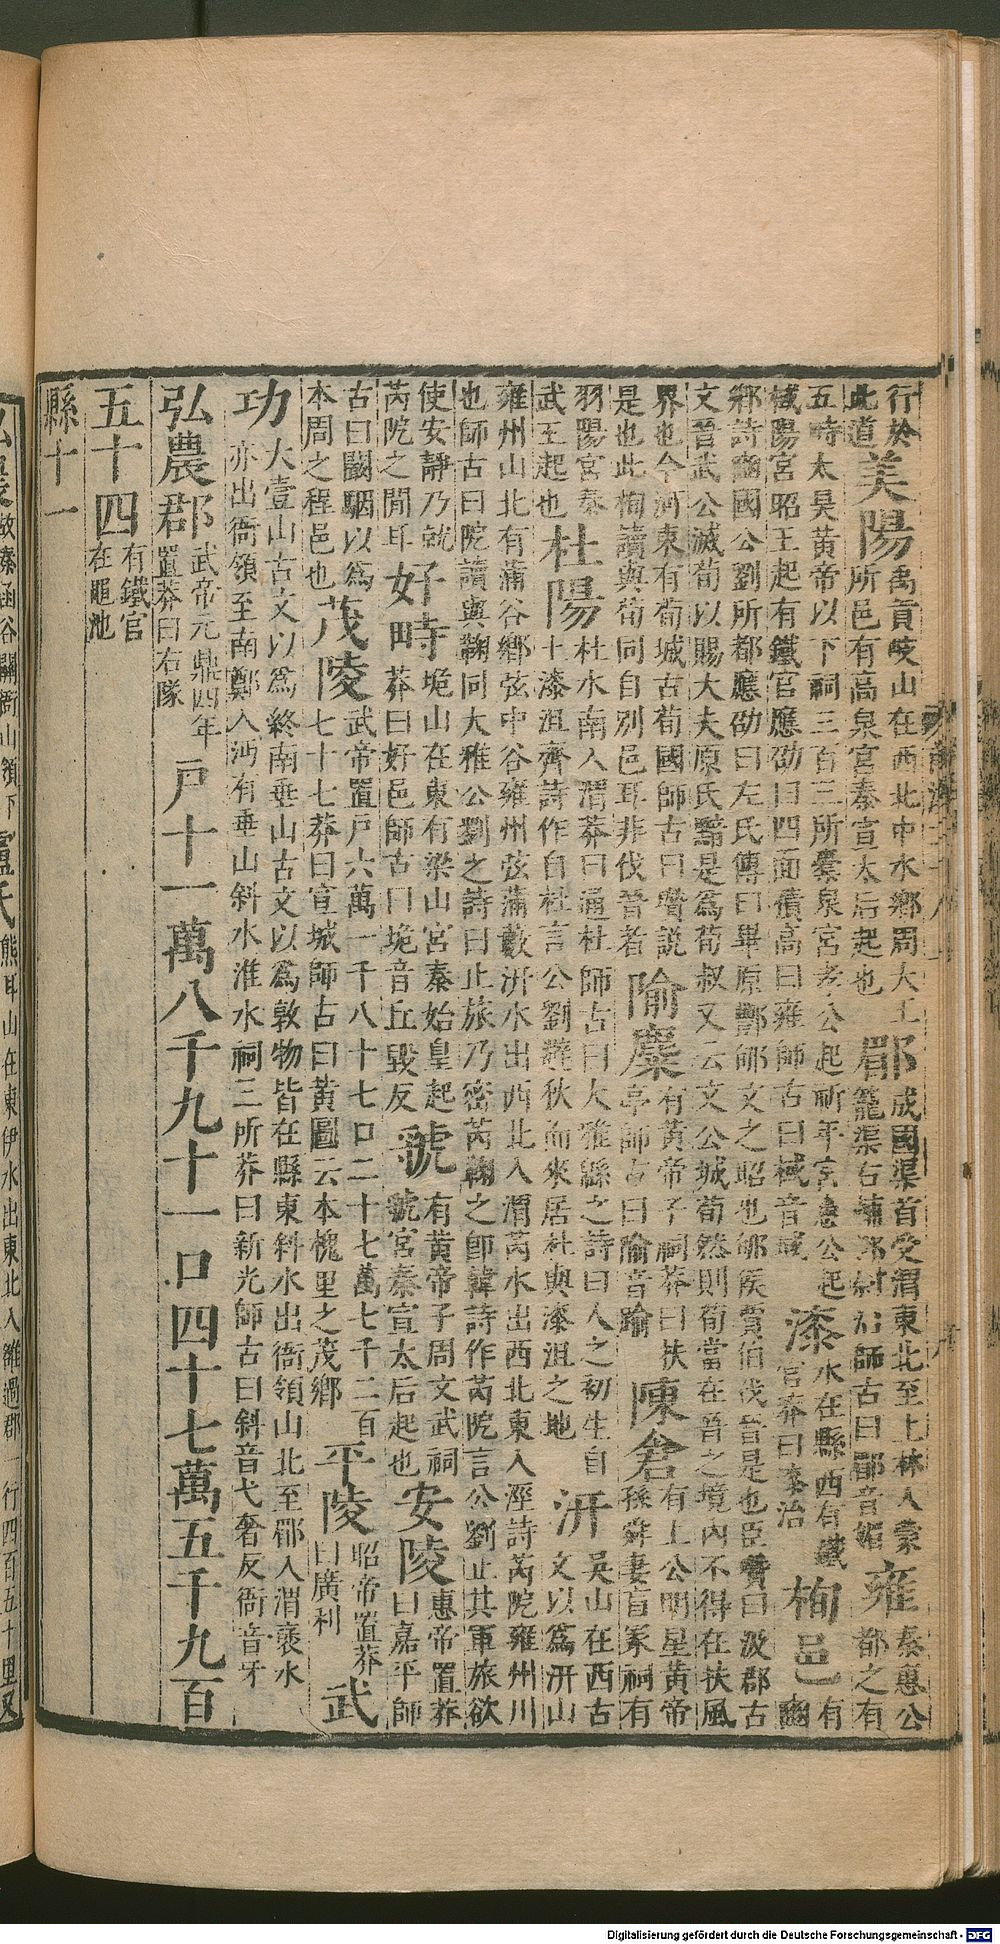 行於
此道
美陽
禹貢岐山在西北中水鄉周大王
所邑有高泉宮秦宣太后起也
郿
成國渠首受渭東北至上林入蒙
籠渠右輔都尉治師古曰郿音媚
雍
秦惠公
都之有
五畤太昊黃帝以下祠三百三所橐泉宮孝公起祈年宮惠公起
棫陽宮昭王起有鐵官應劭曰四面積高曰雍師古曰棫音域
漆
水在縣西有鐵
官莽曰漆治
栒邑
有
豳
鄉詩豳國公劉所都應劭曰左氏傳曰畢原酆郇文之昭也郇侯賈伯伐晉是也臣瓚曰汲郡古
文晉武公滅荀以賜大夫原氏黯是為荀叔又云文公城荀然則荀當在晉之境內不得在扶風
界也今河東有荀城古荀國師古曰瓚說
是也此栒讀與荀同自別邑耳非伐晉者
隃麋
有黃帝子祠莽曰扶
亭師古曰隃音踰
陳倉
有上公明星黃帝
孫舜妻盲冢祠有
羽陽宮秦
武王起也
杜陽
杜水南入渭莽曰通杜師古曰大雅緜之詩曰人之初生自
土漆沮齊詩作自杜言公劉避狄而來居杜與漆沮之地
汧
吳山在西古
文以為汧山
雍州山北有蒲谷鄉弦中谷雍州弦蒲藪汧水出西北入渭芮水出西北東入涇詩芮阮雍州川
也師古曰阮讀與鞫同大雅公劉之詩曰止旅乃密芮鞫之即韓詩作芮阮言公劉止其軍旅欲
使安靜乃就
芮阮之閒耳
好畤
垝山在東有梁山宮秦始皇起
莽曰好邑師古曰垝音丘毀反
虢
有黃帝子周文武祠
虢宮秦宣太后起也
安陵
惠帝置莽
曰嘉平師
古曰闞駰以為
本周之程邑也
茂陵
武帝置戶六萬一千八十七口二十七萬七千二百
七十七莽曰宣城師古曰黃圖云本槐里之茂鄉
平陵
昭帝置莽
曰廣利
武
功
大壹山古文以為終南垂山古文以為敦物皆在縣東斜水出衙領山北至郿入渭褒水
亦出衙領至南鄭入沔有垂山斜水淮水祠三所莽曰新光師古曰斜音弋奢反衙音牙
弘農郡
武帝元鼎四年
置莽曰右隊
戶十一萬八千九十一口四十七萬五千九百
五十四
有鐵官
在黽池
縣十一
故秦函谷關衙山領下
盧氏
熊耳山在東伊水出東北入雒過郡一行四百五十里又
Digitalisierung gefördert durch die Deutsche Forschungsgemeinschaft - DFG